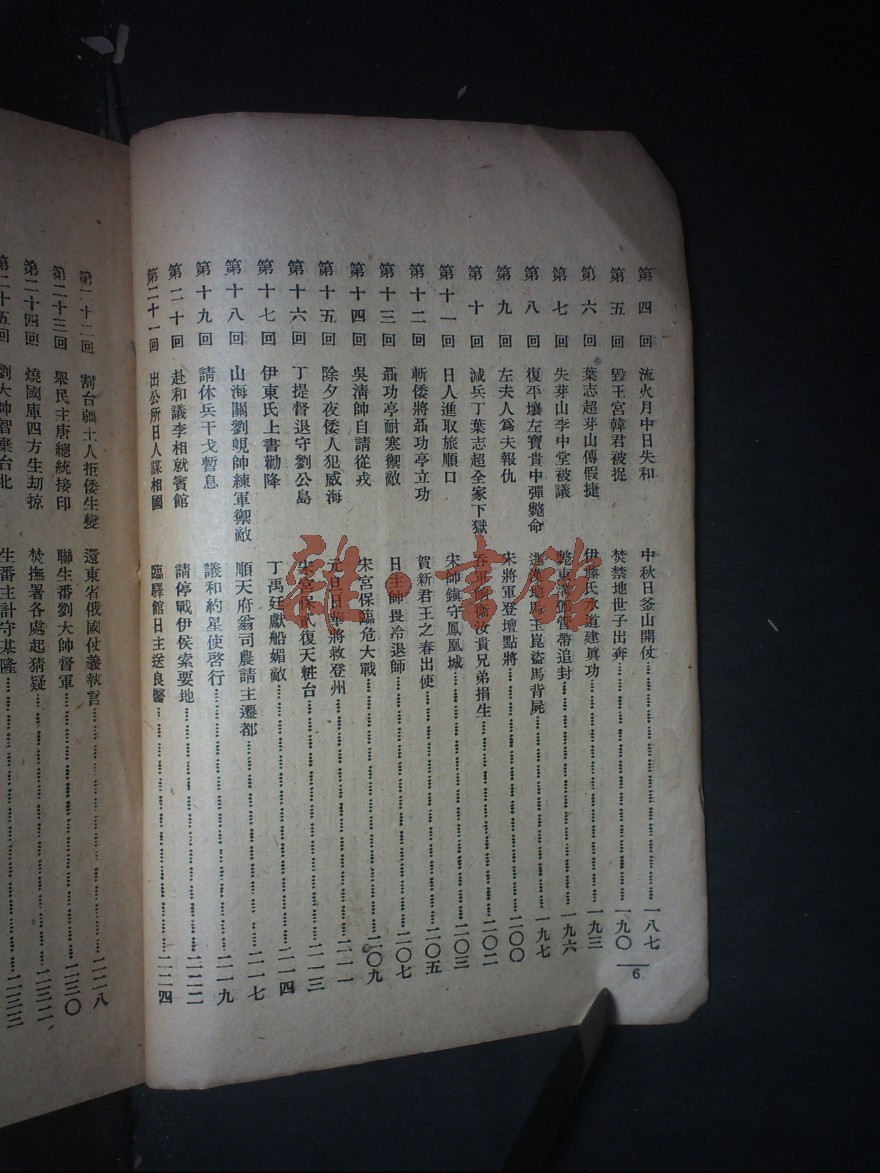 第四回 流火月中日失和 中秋日釜山開仗 一八七
第五回 毀王宮韓君被捉 焚禁地世子出奔 一九〇
第六回 葉志超芽山傳假捷 伊藤氏水道建眞功 一九三
第七回 失芽山李中堂被議 管帶追封 一九六
第八回 復平壤左寶貴中彈斃命 馬玉崑盜馬背屍 一九七
第九回 左夫人爲夫報仇 宋將軍登壇點將 二〇〇
第十回 減兵丁葉志超全家下獄 汝貴兄弟捐生 二〇二
第十一回 日人進取旅順口 宋帥鎭守鳳凰城 二〇三
第十二回 斬倭將聶功亭立功 賀新君王之春出使 二〇五
第十三回 聶功亭耐寒禦敵 日主帥畏冷退師 二〇七
第十四回 吳清帥自請從戎 宋宮保臨危大戰 二〇九
第十五回 除夕夜倭人犯威海 元旦日華將救登州 二一一
第十六回 丁提督退守劉公島 宋宮保貳復天粧台 二一三
第十七回 伊東氏上書勸降 丁禹廷獻船媚敵 二一四
第十八回 山海關劉峴帥練軍禦敵 順天府翁司農請主遷都 二一七
第十九回 請休兵干戈暫息 議和約星使啓行 二一九
第二十回 赴和議李相就賓館 請停戰伊侯索要地 二二二
第二十一回 出公所日人謀相國 臨驛館日主送良醫 二二四
第二十二回 割台疆土人拒倭生變 還東省俄國仗義執言 二二八
第二十三回 舉民主唐總統接印 聯生番劉大帥督軍 二三〇
第二十四回 燒國庫四方生劫掠 焚撫署各處起猜疑 二三二
第二十五回 劉大帥智棄台北 生番主計守基隆 二三三
6
雜·書館